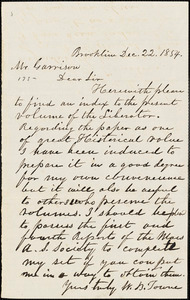 Brookline Dec. 22. 1854.
Mr. Garrison
Dear Sir
Herewith please
to find an index to the present
volume of the Liberator.
Regarding the paper as one
of great Historical value
I have been induced to
prepare it in a good degree
for my own convenience
but it will also be useful
to others who preserve the
volumes. I should like
to possess the first and
fourth Reports of the
A. S. Society to complete
my set if you can put
me in a way to obtain them.
Yours truly W. D. Towne